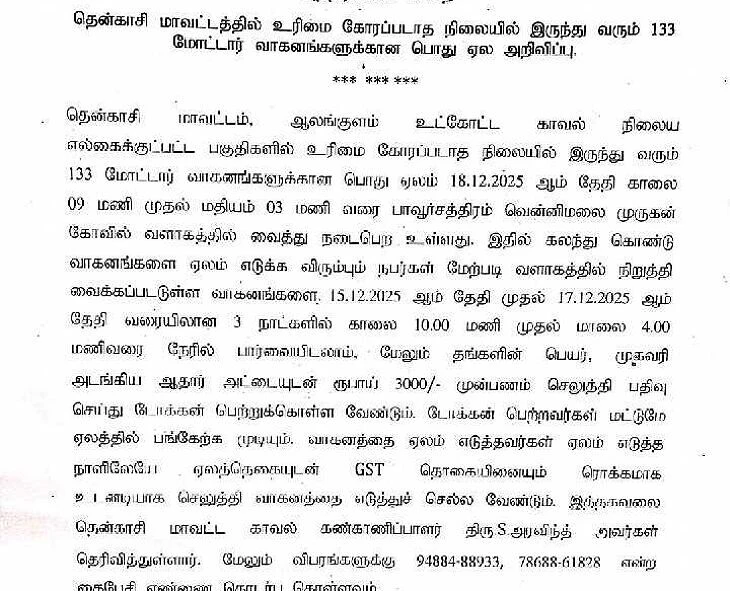 தென்காசி மாவட்டத்தில் உரிமை கோரப்படாத நிலையில் இருந்து வரும் 133
மோட்டார் வாகனங்களுக்கான பொது ஏல அறிவிப்பு.
*** *** ***
தென்காசி மாவட்டம், ஆலங்குளம் உட்கோட்ட காவல் நிலைய
எல்கைக்குட்பட்ட பகுதிகளில் உரிமை கோரப்படாத நிலையில் இருந்து வரும்
133 மோட்டார் வாகனங்களுக்கான பொது ஏலம் 18.12.2025 ஆம் தேதி காலை
09 மணி முதல் மதியம் 03 மணி வரை பாவூர்சத்திரம் வென்னிமலை முருகன்
கோவில் வளாகத்தில் வைத்து நடைபெற உள்ளது. இதில் கலந்து கொண்டு
வாகனங்களை ஏலம் எடுக்க விரும்பும் நபர்கள் மேற்படி வளாகத்தில் நிறுத்தி
வைக்கப்பட்டுள்ள வாகனங்களை, 15.12.2025 ஆம் தேதி முதல் 17.12.2025 ஆம்
தேதி வரையிலான 3 நாட்களில் காலை 10.00 மணி முதல் மாலை 4.00
மணிவரை நேரில் பார்வையிடலாம், மேலும் தங்களின் பெயர், முகவரி
அடங்கிய ஆதார் அட்டையுடன் ரூபாய் 3000/- முன்பணம் செலுத்தி பதிவு
செய்து டோக்கன் பெற்றுக்கொள்ள வேண்டும். டோக்கன் பெற்றவர்கள் மட்டுமே
ஏலத்தில் பங்கேற்க முடியும். வாகனத்தை ஏலம் எடுத்தவர்கள் ஏலம் எடுத்த
நாளிலேயே ஏலத்தொகையுடன் GST தொகையினையும் ரொக்கமாக
உடனடியாக செலுத்தி வாகனத்தை எடுத்துச் செல்ல வேண்டும். இத்தகவலை
தென்காசி மாவட்ட காவல் கண்காணிப்பாளர் திரு.S.அரவிந்த் அவர்கள்
தெரிவித்துள்ளார். மேலும் விபரங்களுக்கு 94884-88933, 78688-61828 என்ற
கைபேசி எண்ணை தொடர்பு கொள்ளவும்